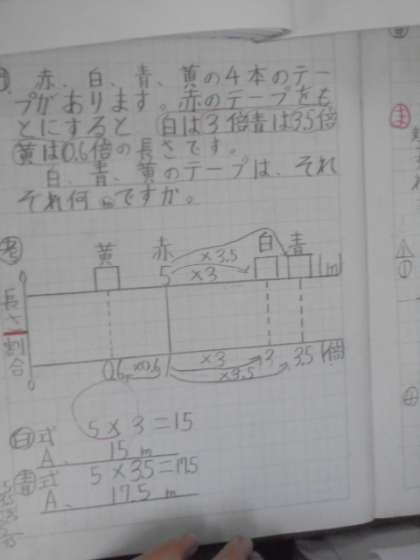 赤、白、青、黄の4本のテー
プがあります。赤のテープをも
とにすると 白は3倍青は3.5倍
黄は0.6倍の長さです。
白、青、黄のテープは、それ
ぞれ何mですか。
考
黄 赤 白 青
×3.5
×3
0 5 m
長さ
割合
0 0.6 ×0.6 1 ×3 3 3.5 倍
×3.5
白 式 5×3=15
A、 15m
青 式 5×3.5=17.5
A、 17.5m